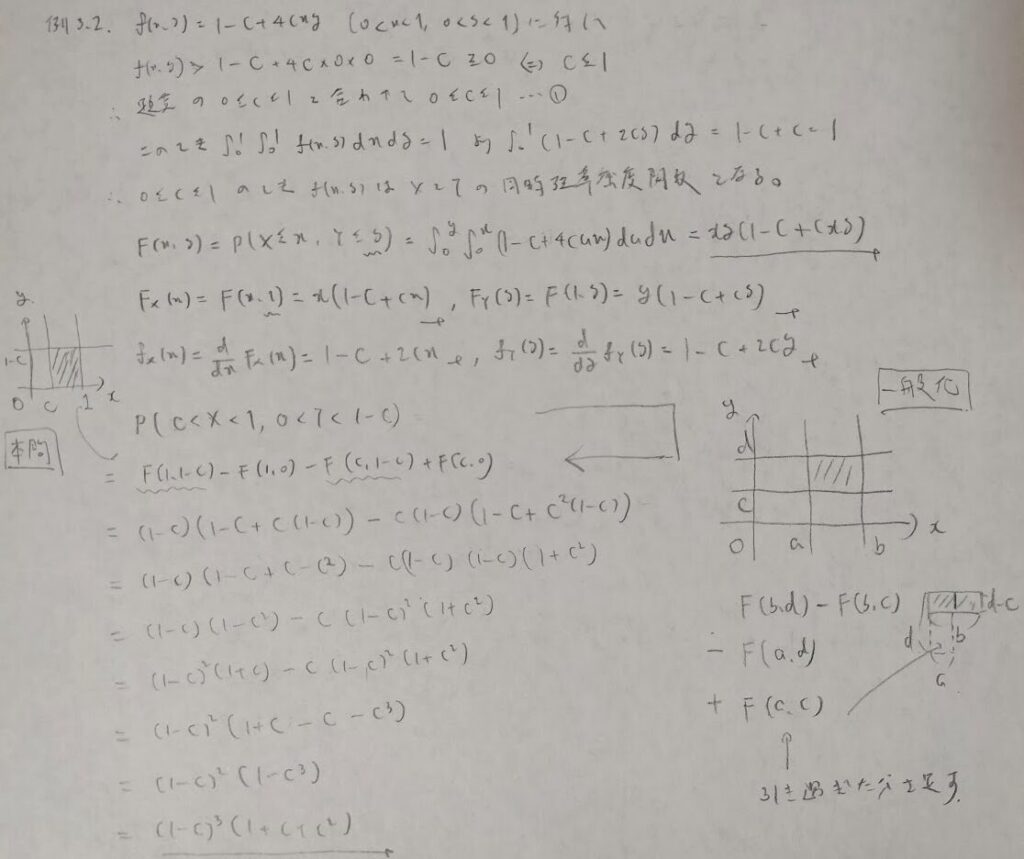 例3.2. f(x,y) = 1-C+4Cxy (0<x<1, 0<y<1) に対し
f(x,y) > 1-C+4C×0×0 = 1-C ≧0 ⇔ C≦1
∴ 題意の 0≦C≦1 と合わせて 0≦C≦1 …①
このとき ∫₀¹∫₀¹ f(x,y)dxdy=1 より ∫₀¹(1-C+2Cy)dy = 1-C+C=1
∴ 0≦C≦1 のとき f(x,y) は XとYの同時確率密度関数となる。
F(x,y) = P(X≦x, Y≦y) = ∫₀^y∫₀^x (1-C+4Cuv)dudv = xy(1-C+Cxy)
Fx(x) = F(x,1) = x(1-C+Cx), FY(y) = F(1,y) = y(1-C+Cy)
fx(x) = d/dx Fx(x) = 1-C+2Cx, fY(y) = d/dy fY(y) = 1-C+2Cy
y
1-C
O C 1 x
本問
P(C<X<1, 0<Y<1-C)
= F(1,1-C) - F(1,0) - F(C,1-C) + F(C,0)
= (1-C)(1-C+C(1-C)) - C(1-C)(1-C+C²(1-C))
= (1-C)(1-C+C-C²) - C(1-C)(1-C)(1+C²)
= (1-C)(1-C²) - C(1-C)²(1+C²)
= (1-C)²(1+C) - C(1-C)²(1+C²)
= (1-C)²(1+C-C-C³)
= (1-C)²(1-C³)
= (1-C)³(1+C+C²)
一般化
y
d
C
O a b x
F(b,d) - F(b,c)
- F(a,d)
+ F(c,c)
d-c
d b
a
引き過ぎた分を足す